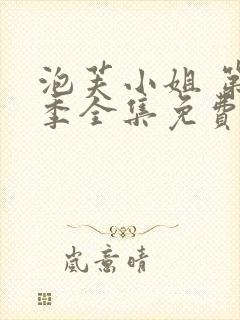 泡芙小姐 第
季全集免费
岚意晴